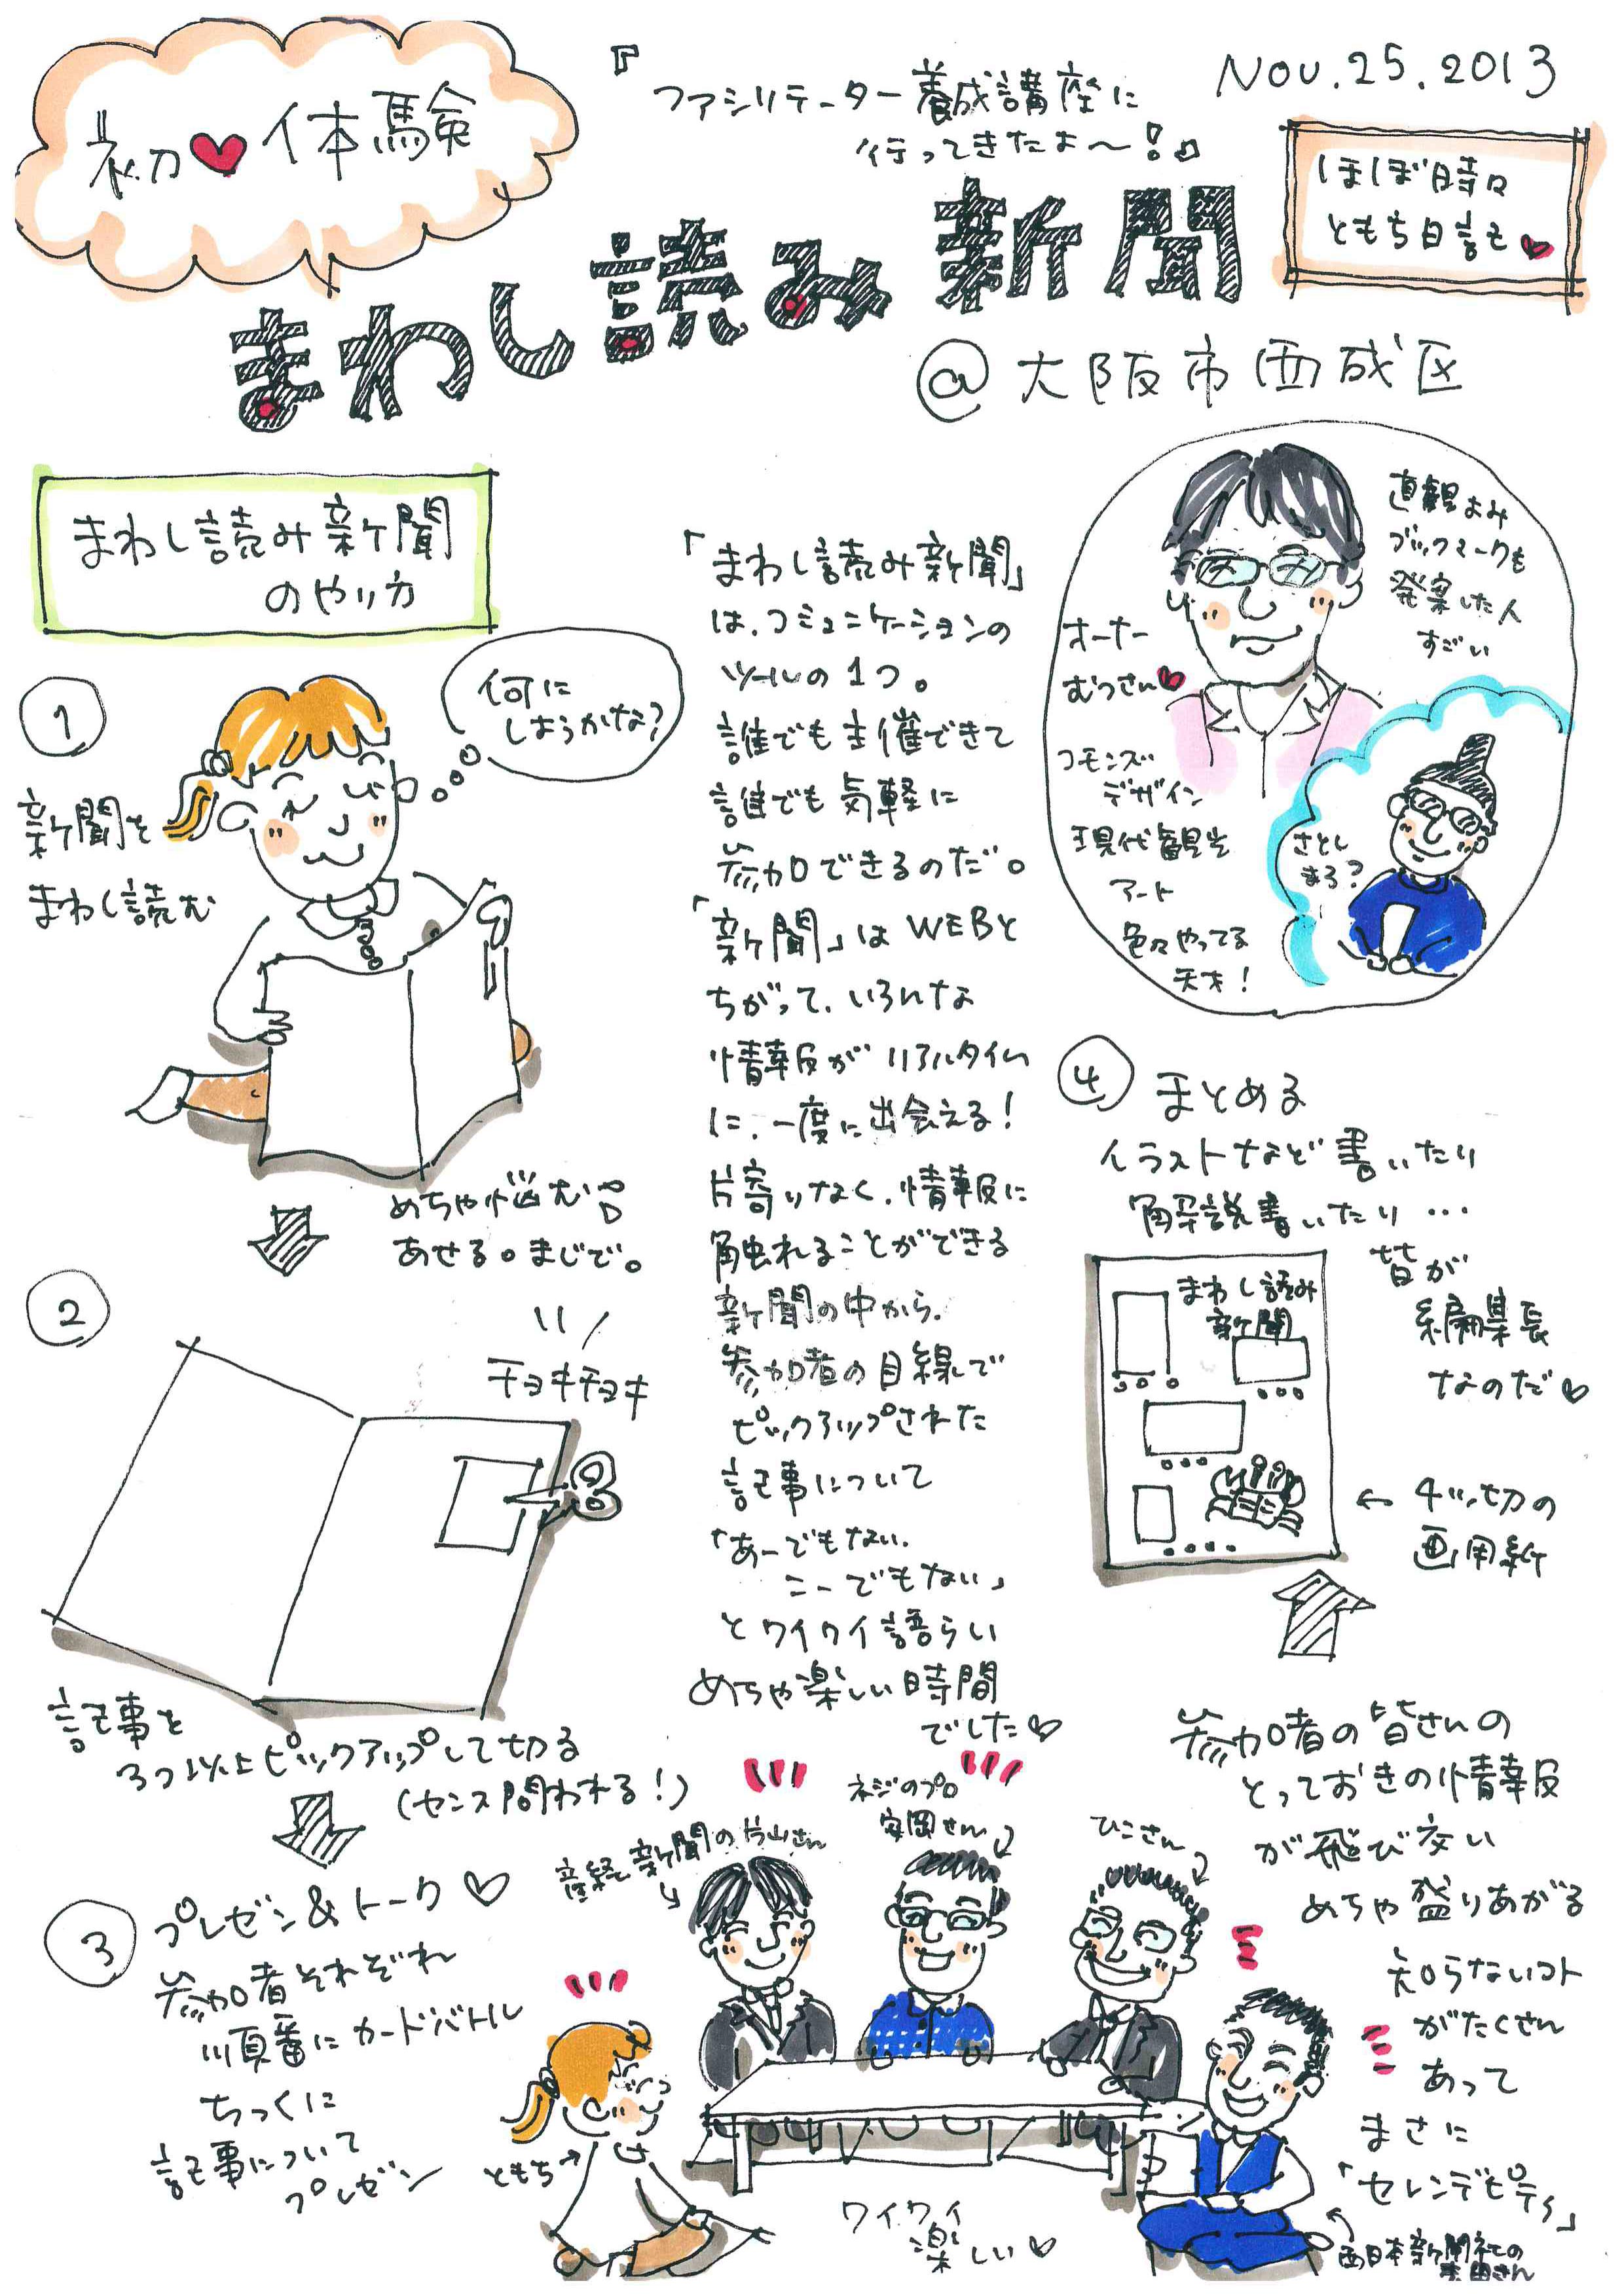 初♥体験
『ファシリテーター養成講座に
行ってきたよ〜!』
NOV.25.2013
ほぼ時々
ともち日記♥
まわし読み新聞
@大阪市西成区
まわし読み新聞
のやり方
1
新聞を
まわし読む
何に
しようかな?
めちゃ悩む
あせる。まじで。
2
チョキチョキ
記事を
3つ以上ピックアップして切る
(センス問われる!)
3
プレゼン&トーク♡
参加者それぞれ
順番にカードバトル
ちっくに
記事について
プレゼン
「まわし読み新聞」
は、コミュニケーションの
ツールの1つ。
誰でも主催できて
誰でも気軽に
参加できるのだ。
「新聞」はWEBと
ちがって、いろんな
情報がリアルタイム
に、一度に出会える!
片寄りなく、情報に
触れることができる
新聞の中から、
参加者の目線で
ピックアップされた
記事について
「あーでもない、
こーでもない」
とワイワイ語らい
めちゃ楽しい時間
でした♡
直観よみ
ブックマークも
発案した人
すごい
オーナー
むつさん♥
コモンズ
デザイン
現代観光
アート
色々やってる
天才!
さとし
まろ?
4
まとめる
イラストなど書いたり
解説書いたり…
皆が
編集長
なのだ♡
まわし読み
新聞
←4ツ切の
画用紙
参加者の皆さんの
とっておきの情報
が飛び交い
めちゃ盛りあがる
知らないコト
がたくさん
あって
まさに
「セレンデピティ」
産経新聞の片山さん
ネジのプロ
安岡さん
ひこさん
ともち→
ワイワイ
楽しい♡
西日本新聞社の